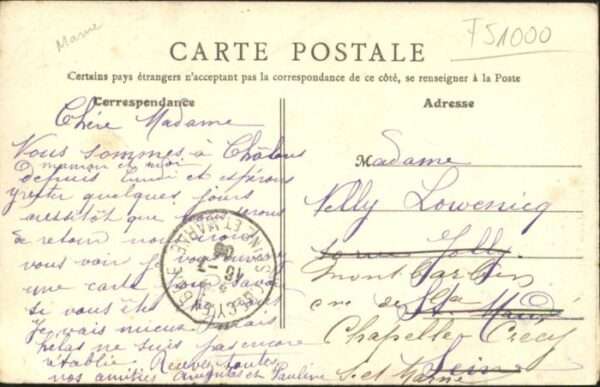 Marne
F51000
CARTE POSTALE
Certains pays étrangers n'acceptent pas la correspondance de ce côté, se renseigner à la Poste
Correspondance
Chère Madame
Vous sommes à Châlons
maman et moi
depuis lundi et espérons
y rester quelques jours
aussitôt que nous serons
de retour nous irons
vous voir
une carte pour savoir
si vous êtes
Je vais mieux mais
helas ne suis pas encore
rétablie. Recevez toutes
nos amitiés Augusta et Pauline
Adresse
Madame
Nelly Lowenicq
Jolly
Mont Barbin
St Maur
Chapelles Crécy
Seine
S. et Marne
SEINE ET MARNE